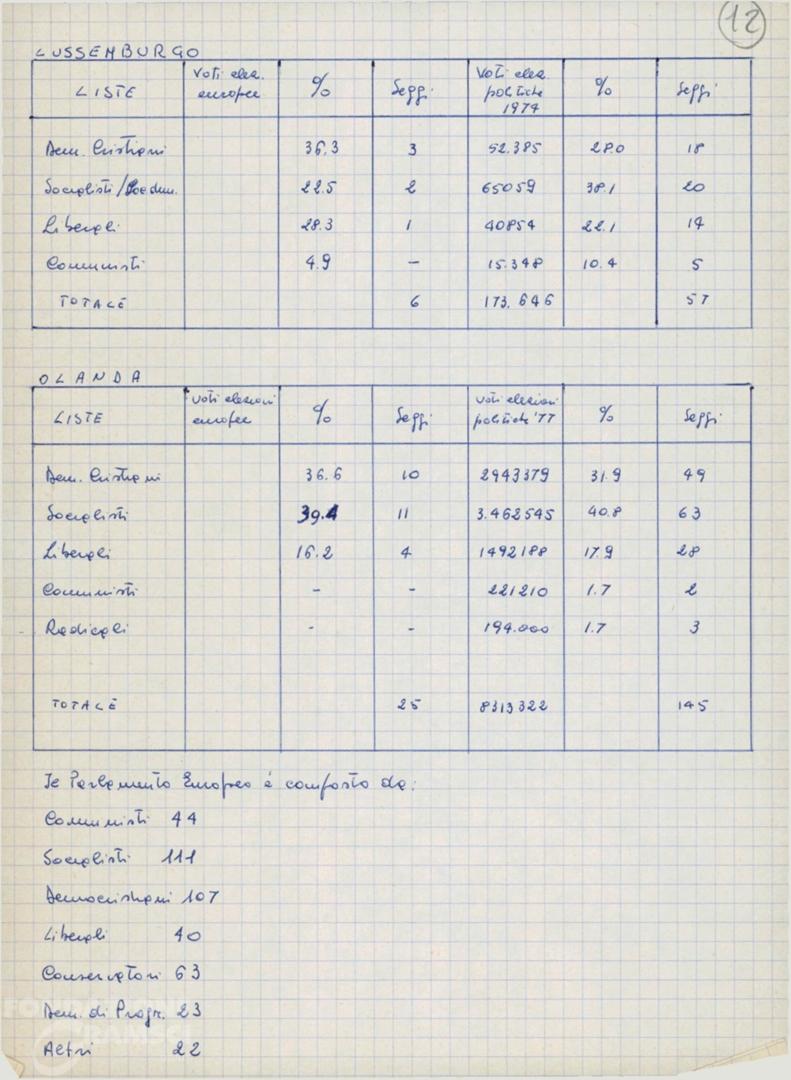 12
LUSSEMBURGO
LISTE Voti elez. europee % Seggi Voti elez. politiche 1974 % Seggi
Dem. Cristiani 36.3 3 52.385 28.0 18
Socialisti/Socdem. 22.5 2 65059 38.1 20
Liberali 28.3 1 40854 22.1 14
Comunisti 4.9 – 15.348 10.4 5
TOTALE 6 173.646 57
OLANDA
LISTE Voti elezioni europee % Seggi Voti elezioni politiche '77 % Seggi
Dem. Cristiani 36.6 10 2943379 31.9 49
Socialisti 39.4 11 3.462545 40.8 63
Liberali 16.2 4 1492188 17.9 28
Comunisti – – 221210 1.7 2
Radicali - - 194.000 1.7 3
TOTALE 25 8313322 145
Il Parlamento Europeo è composto da:
Comunisti 44
Socialisti 111
Democristiani 107
Liberali 40
Conservatori 63
Dem. di Progr. 23
Altri 22